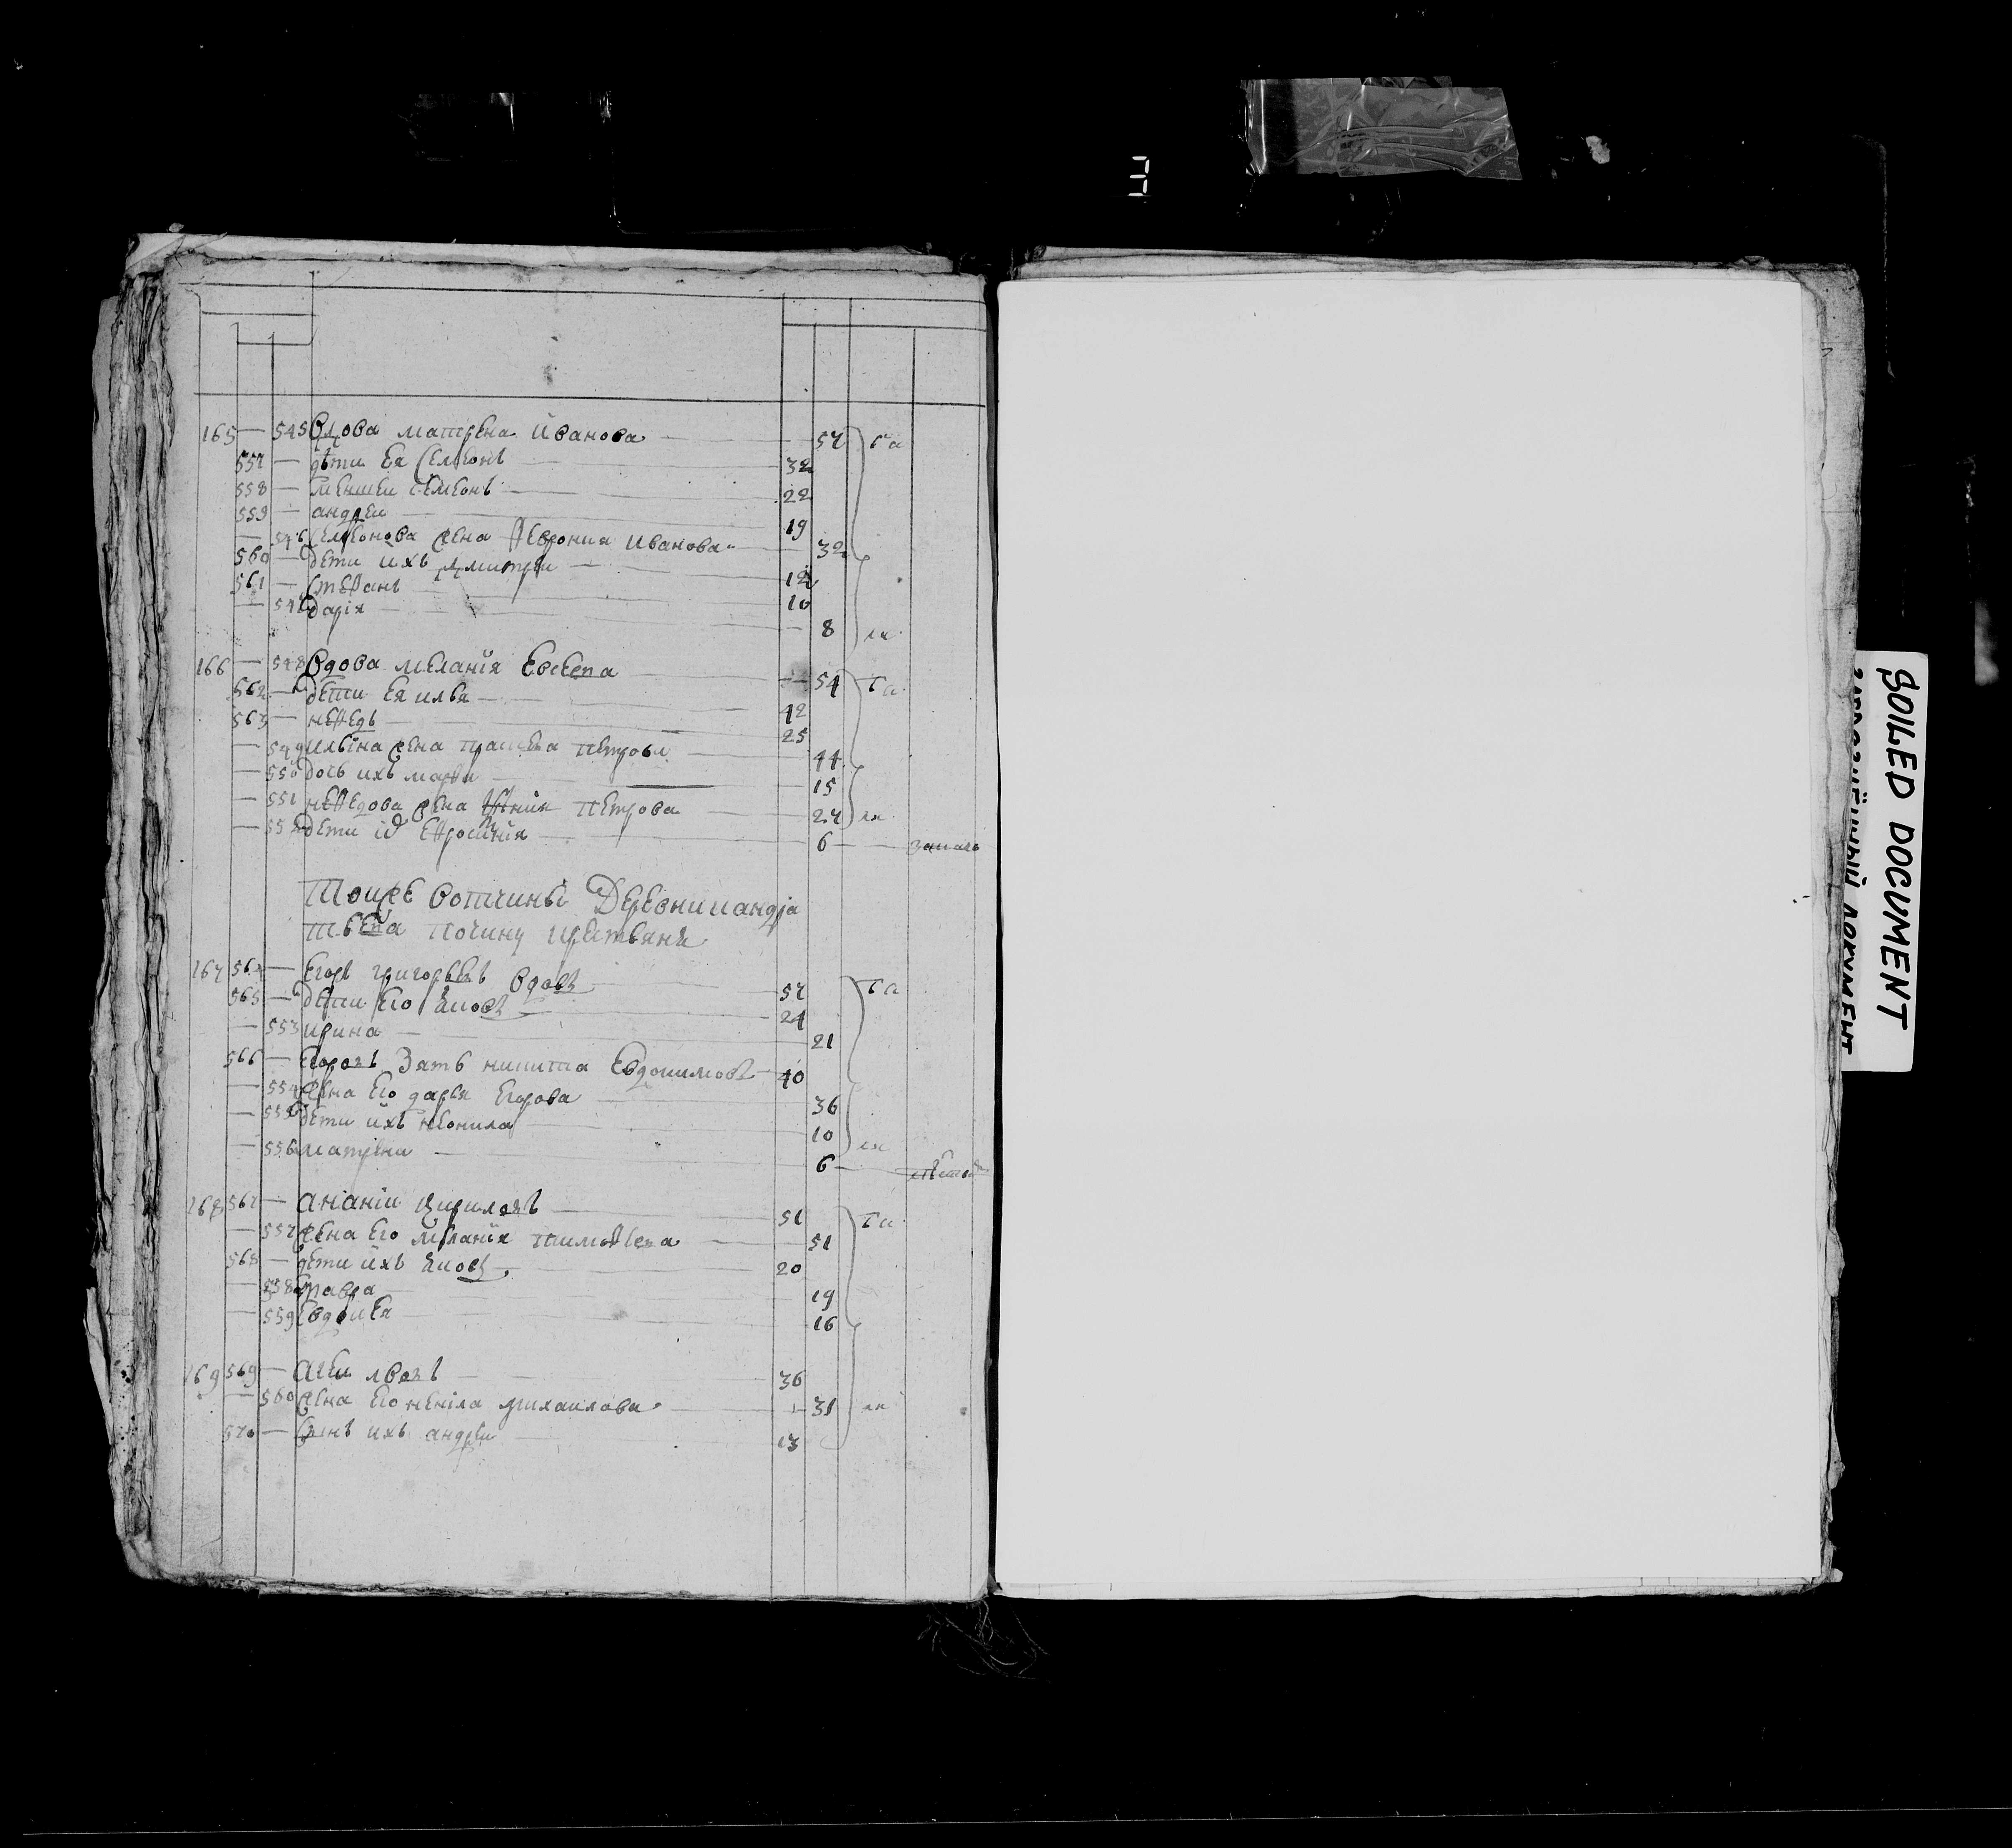 165 — 545 Вдова матрена Иванова — 57 та
557 — дѣти Ея Семионъ — 32
558 — меншеи семеонъ — 22
559 — андреи — 19
— 546 Семионова жена Феврония Иванова — 32
560 — дети ихъ дмитреи — 12
561 — Стефанъ — 10
— 547 дария — 8 ля
166 — 548 Вдова мелания Евсеева — 54 та
562 — дети Ея илья — 42
563 — нефедъ — 25
— 549 Ильина жена Петрова — 44
— 550 дочь ихъ марфа — 15
— 551 нефедова жена Петрова — 27 ля
— 552 дети Ефросиния — 6 —
Тоиже вотчины Деревни
починку крестьяня
167 564 — Егоръ григорьевъ вдовъ — 57 та
565 — дети Его — 24
— 553 ирина — 21
566 — Егоровъ Зять никита Евдокимовъ — 40
— 554 жена Его дарья Егорова — 36
— 555 дети ихъ неонила — 10 ля
— 556 матрена — 6 —
168 567 — Ананiи Кириловъ — 51 та
— 557 жена Его мелания тимофеева — 51
568 — дети ихъ — 20
— 558 — 19
— 559 Евдокея — 16
169 569 — Агеи лвовъ — 36
— 560 жена Его ненила михаилова — 31 ля
570 — Сынъ ихъ андреи — 13
SOILED DOCUMENT
ДОКУМЕНТ